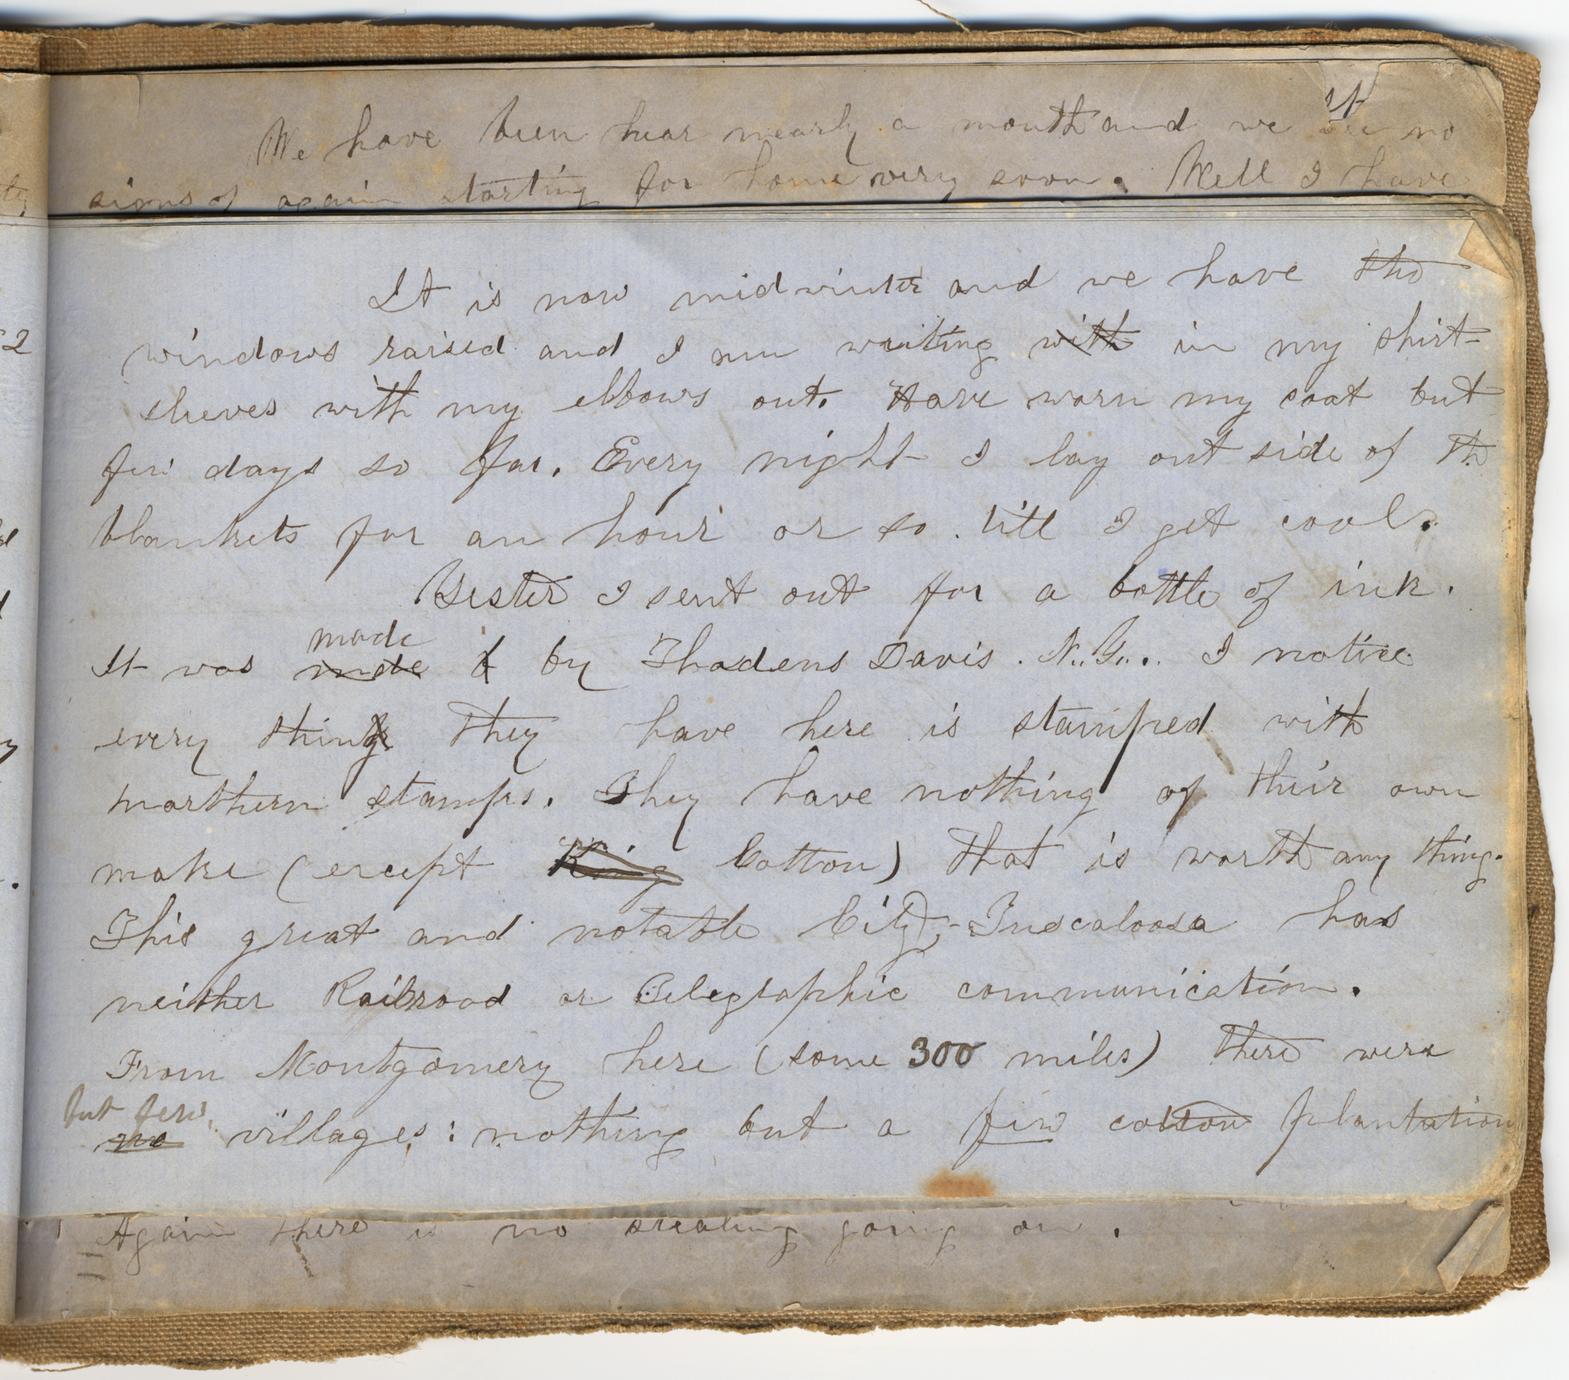 We have been hear nearly a month and we see no
signs of again starting for home very soon. Well I have
It is now midwinter and we have the
windows raised and I am writing with in my shirt-
sleeves with my elbows out. Have worn my coat but
few days so far. Every night I lay out side of th
blankets for an hour or so till I get cool.
Yester I sent out for a bottle of ink.
made
It was made & by Thadens Davis. N.Y.. I notice
every things they have here is stamped with
northern stamps. They have nothing of their own
make (except King Cotton) that is worth any thing.
This great and notable City,-Tuscaloosa has
neither Railroad or Telegraphic communication.
From Montgomery here (some 300 miles) there were
but few
no villages: nothing but a few cotton plantation
Again there is no stealing going on.